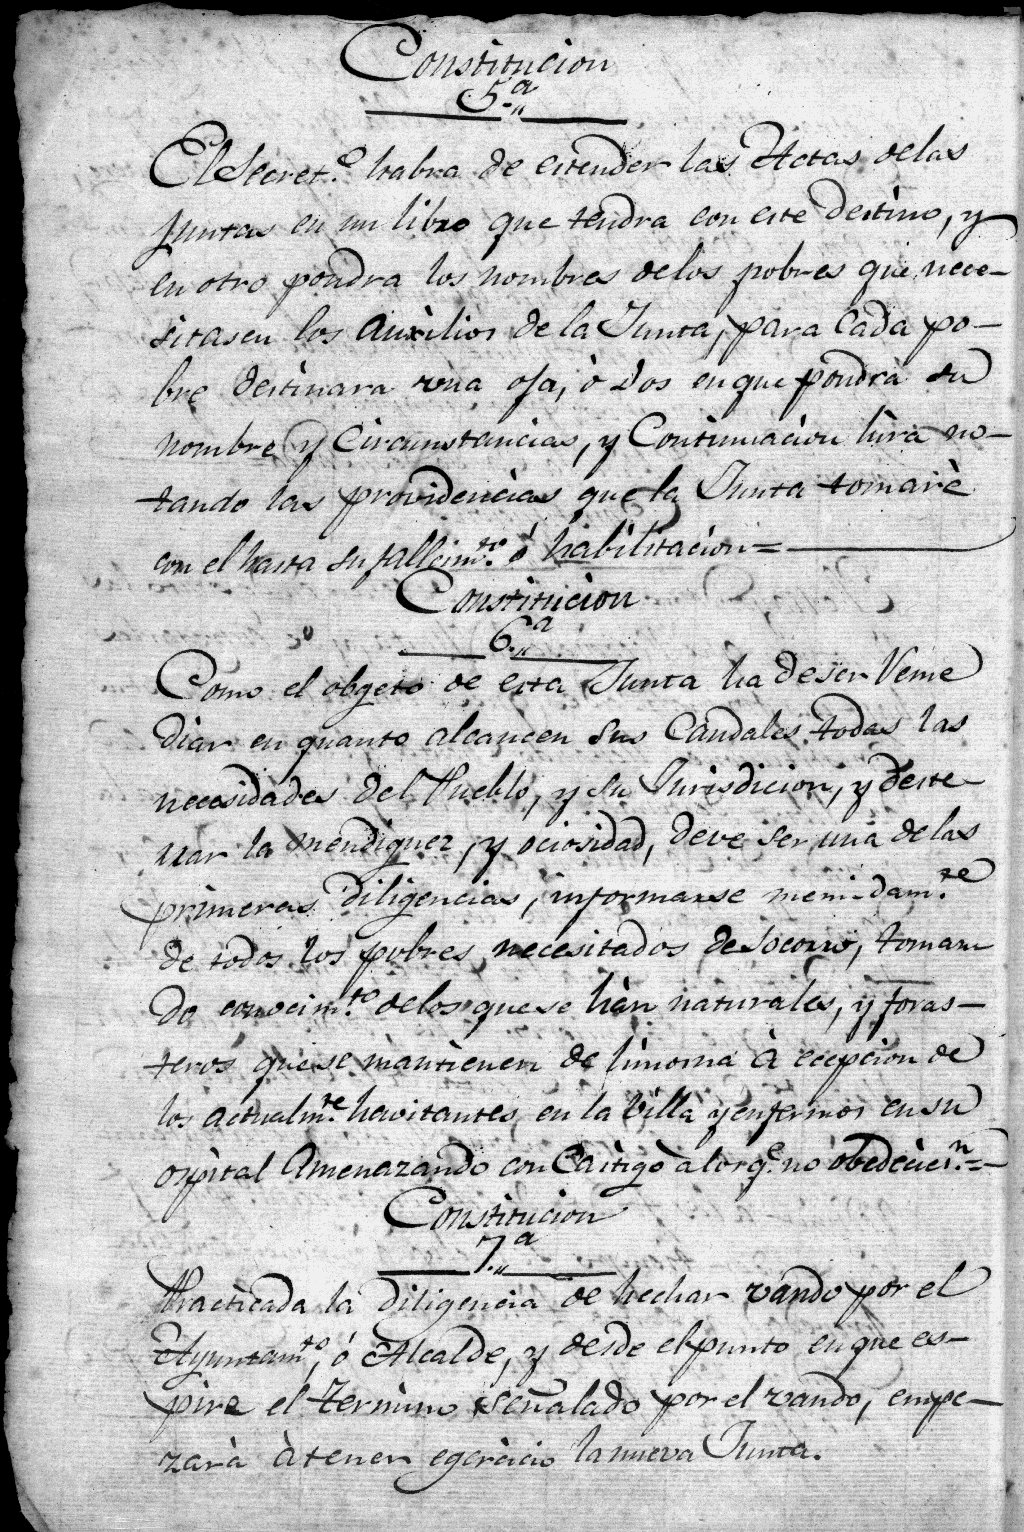 Constitucion
5.ª
El Secret.º habra de estender las Actas delas
Juntas en un libro que tendra con este destino, y
en otro pondra los nombres delos pobres que nece-
sitasen los Auxilios de la Junta, para Cada po-
bre destinara una oja, ò dos en que pondrà su
nombre y Circunstancias, y Continuacion hira no-
tando las providencias que la Junta tomarè
con el hasta su fallecim.to ó habilitacion=
Constitucion
6.ª
Como el obgeto de esta Junta ha deser Reme
diar en quanto alcancen sus Caudales todas las
necesidades del Pueblo, y su Jurisdicion, y deste-
rrar la mendiguez, y ociosidad, deve ser una delas
primeras Diligencias, informarse menudam.te
de todos los pobres necesitados de Socorro, toman
do conocim.to delos que se hàn naturales, y foras-
teros que se mantienen de limosna à ecepcion de
los actualm.te havitantes en la Villa y enfermos en su
ospital Amenazando con Castigo à los q.e no obedecies.n=
Constitucion
7.ª
Practicada la Diligencia de hechar vando por el
Ayuntam.to, ó Alcalde, y desde el punto en que es-
pire el termino señalado por el vando, empe-
zarà à tener egercicio la nueva Junta.